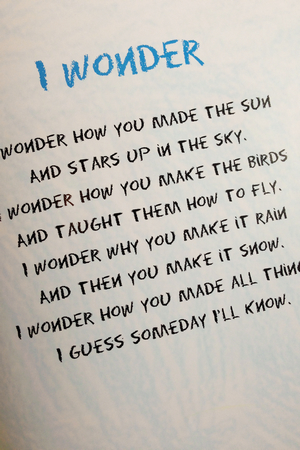 I WONDER
WONDER HOW YOU MADE THE SUN
AND STARS UP IN THE SKY.
I WONDER HOW YOU MAKE THE BIRDS
AND TAUGHT THEM HOW TO FLY.
I WONDER WHY YOU MAKE IT RAIN
AND THEN YOU MAKE IT SNOW.
I WONDER HOW YOU MADE ALL THING
I GUESS SOMEDAY I'LL KNOW.